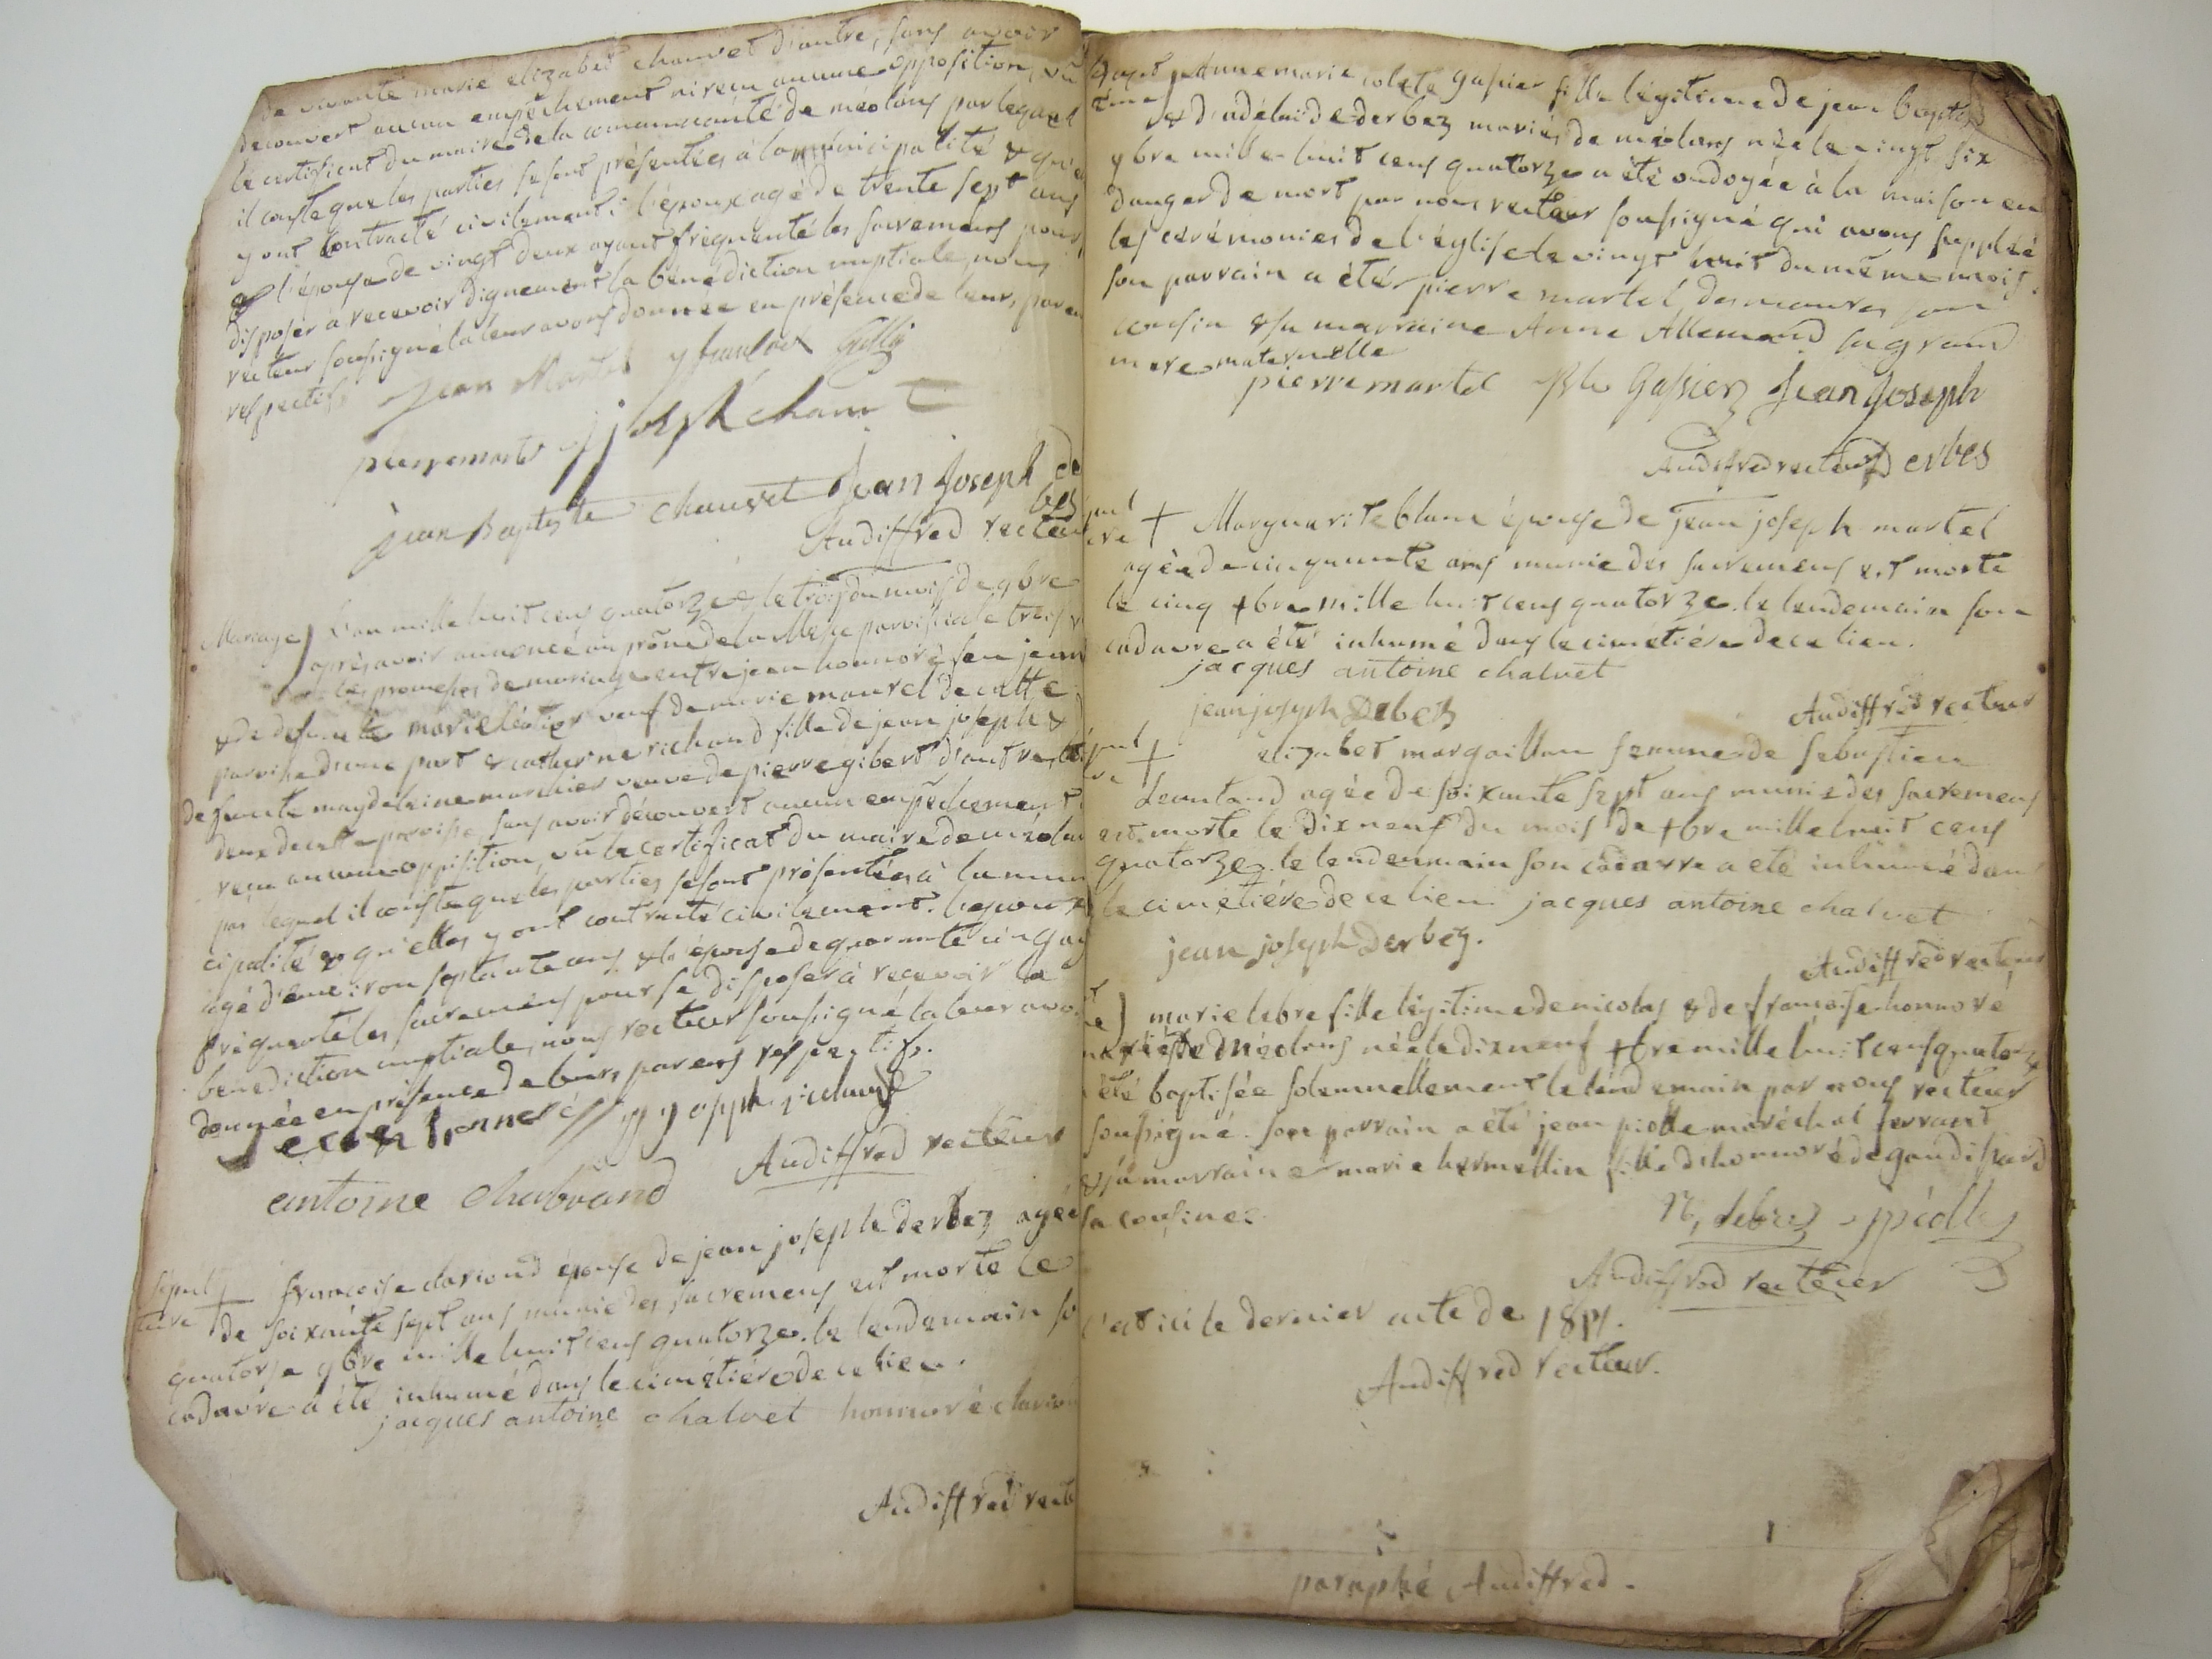 de vivante marie elizabet chauvet d'autre, sans avoir
decouvert aucun empêchement ni reçu aucune opposition, vu
le certificat du maire de la communauté de méolans par lequel
il conste que les parties se sont présentées à la municipalité & qu'elles
y ont contracté civilement; l'époux agé de trente sept ans
& l'épouse de vingt deux ayant fréquenté les sacremens pour se
disposer à recevoir dignement la bénédiction nuptiale, nous
recteur soussigné la leur avons donnée en présence de leurs parens
respectifs
jean Martel
pierre martel joseph chauvet
jean Baptiste chauvet Jean Joseph der
bes
Audiffred recteur
Mariage) L'an mille huit cens quatorze & le trois du mois de 9bre
après avoir annoncé au prône de la Messe paroissiale trois
les promesses de mariage entre jean honnoré feu jean
& de defunte marie léotier veuf de marie maurel de cette
paroisse d'une part & catherine richaud fille de jean joseph & de
defunte magdeleine marchier veuve de pierre gibert d'autre, tous
deux de cette paroisse, sans avoir découvert aucun empêchement ni
reçu aucune opposition, vû le certificat du maire de méolans
par lequel il conste que les parties se sont présentées à la muni
cipalité & qu'elles y ont contracté civilement. l'epoux
agé d'environ septante ans & l'épouse de quarante cinq ay
fréquenté les sacremens pour se disposer à recevoir la
bénédiction nuptiale, nous recteur soussigné la leur avons
donnée en présence de leurs parens respectifs.
jean honnoré joseph richaud
antoine chabrand Audiffred recteur
sepul
ture + françoise clariond épouse de jean joseph derbez agée
de soixante sept ans munie des sacremens est morte le
quatorse 9bre mille huit cens quatorze. le lendemain so
cadavre a été inhumé dans le cimétière de ce lieu.
jacques antoine chalvet honnoré clariond
Audiffred recte
Bapt
ême) Anne marie colete gassier fille légitime de jean baptiste
& d'adélaide derbez mariés de méolans née le vingt six
9bre mille huit cens quatorze a été ondoyée à la maison en
danger de mort par nous recteur soussigné qui avons suppléé
les cerémonies de l'église le vingt huit du même mois.
son parrain a été pierre martel des maures son
cousin & sa marraine Anne Allemand sa grand
mere maternelle
pierre martel Gassier Jean Joseph
Audiffred recteur Derbes
pul
ure + Marguarite blanc épouse de jean joseph martel
agée de cinquante ans munie des sacremens est morte
le cinq xbre mille huit cens quatorze. le lendemain son
cadavre a été inhumé dans le cimétière de ce lieu.
jacques antoine chalvet
jean joseph Debez Audiffred recteur
pul
re + elizabet margaillan femme de sebastien
Leautaud agée de soixante sept ans munie des sacremens
est morte le dix neuf du mois de xbre mille huit cens
quatorze. le lendemain son cadavre a été inhumé dans
le cimetière de ce lieu. jacques antoine chalvet
jean joseph Derbez.
Audiffred recteur
marie lebre fille légitime de nicolas & de françoise honnoré
mariés de Méolans née le dix neuf xbre mille huit cens quatorze
été baptisée solemnellement le lendemain par nous recteur
soussigné. son parrain a été jean piolle maréchal ferrant
& sa marraine marie hermellin fille d'honnoré de gaudissard
sa cousine.
N, lebre piolle
Audiffred recteur
c'est ici le dernier acte de 1814.
Audiffred recteur.
paraphé Audiffred.